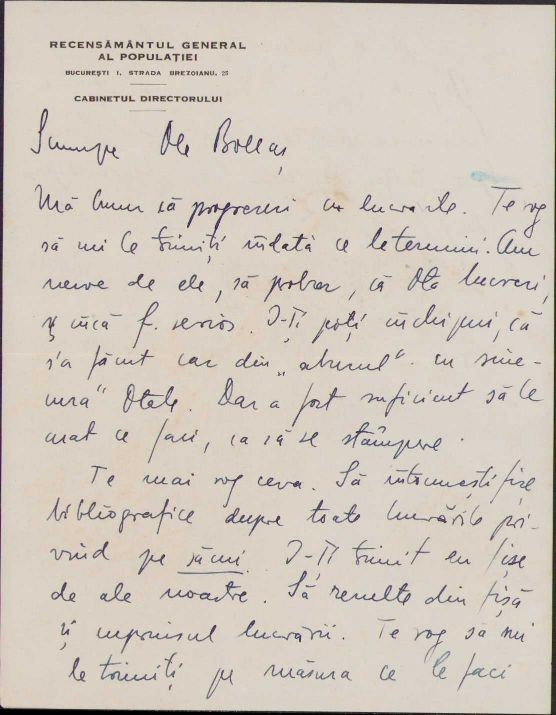 RECENSĂMÂNTUL GENERAL
AL POPULAȚIEI
BUCUREȘTI I, STRADA BREZOIANU, 25
CABINETUL DIRECTORULUI
Scumpe Ole Bollaș
Mă bucur să progresezi cu lucrările. Te rog
să mi le trimiți îndată ce le termini. Am
nevoe de ele, să probez, că Ole lucrezi,
și încă f. serios. I-Ți poți închipui, că
s'a făcut caz din „abuzul" cu sine-
cura" Otale. Dar a fost suficient să le
arat ce faci, ca să se stâmpere.
Te mai rog ceva. Să întocmești fișe
bibliografice despre toate lucrările pri-
vind pe sămi. I-Ți trimit eu fișe
de ale noastre. Să rezulte din fișă
și cuprinsul lucrării. Te rog să mi
le trimiți pe măsura ce le faci